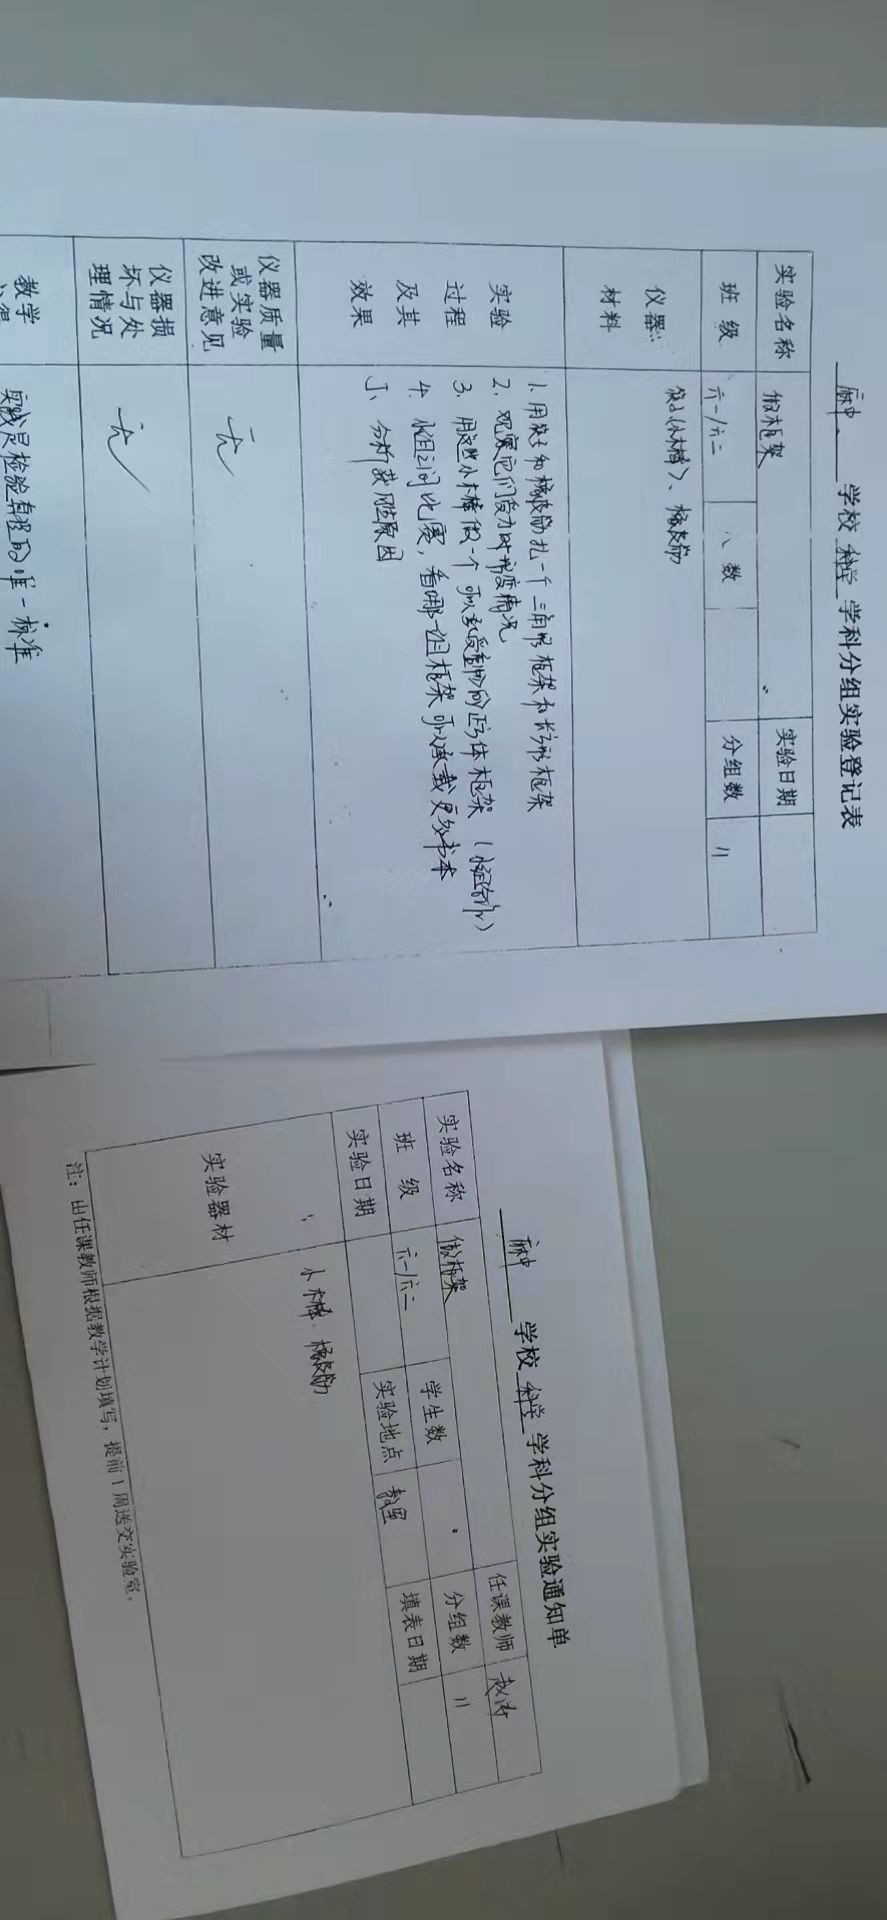 麻中 学校 科学 学科分组实验登记表
实验名称 做框架 实验日期
班 级 六一/六二 人 数 分组数 11
仪器
材料
筷子(小木棒)、橡皮筋
实验
过程
及其
效果
1. 用筷子和橡皮筋扎一个三角形框架和长方形框架
2. 观察它们受力时形变情况
3. 用这些小木棒做一个可以承受重物的正方体框架(小组合作)
4. 小组之间比赛,看哪一组框架可以承载更多书本
5、分析获胜原因
仪器质量
或实验
改进意见
无
仪器损
坏与处
理情况
无
教学
实践是检验真理的唯一标准
麻中 学校 科学 学科分组实验通知单
实验名称 做框架 任课教师 赵涛
班 级 六一/六二 学生数 分组数 11
实验日期 实验地点 教室 填表日期
实验器材 小木棒、橡皮筋
注:由任课教师根据教学计划填写,提前1周送交实验室.